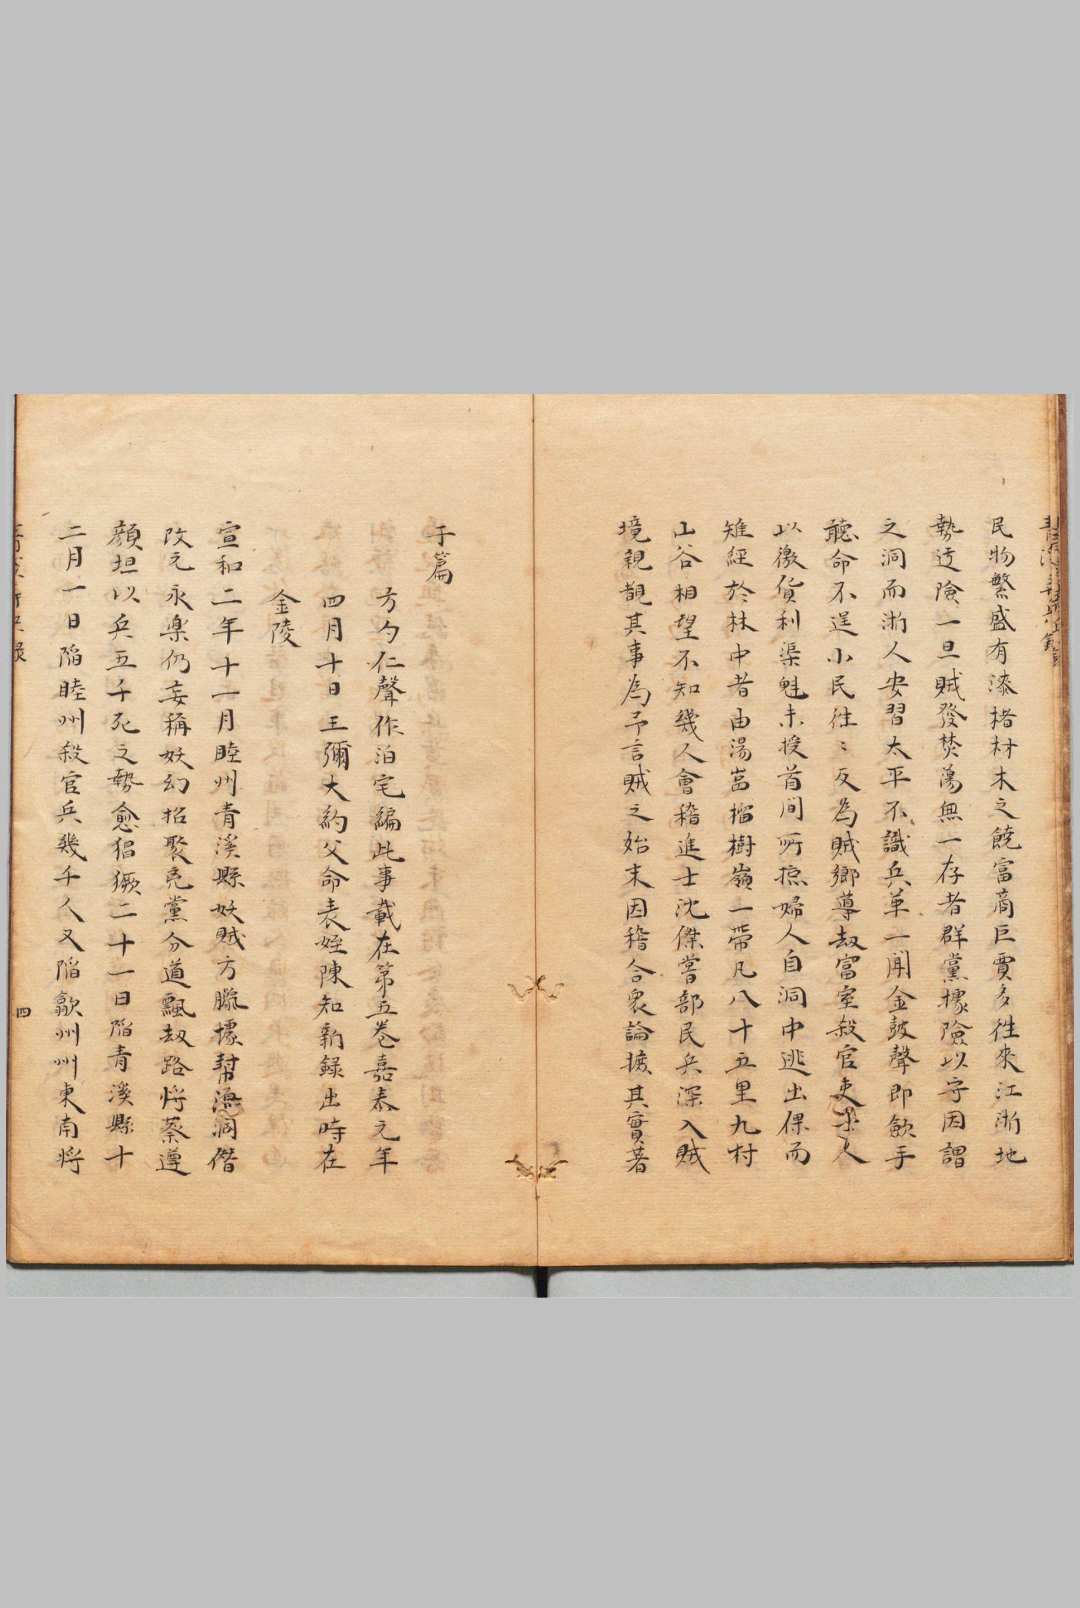 民物繁盛有漆楮材木之饒富商巨賈多徃來江浙地
勢迂險一旦賊發焚蕩無一存者群黨據險以守因謂
之洞而浙人安習太平不識兵革一聞金鼓聲即歛手
聽命不逞小民徃〻反為賊鄉導刼富室殺官吏士人
以徼貨利渠魁未授首間所掠婦人自洞中逃出倮而
雉經於林中者由湯嵓榴樹嶺一帶凡八十五里九村
山谷相望不知幾人會稽進士沈傑嘗部民兵深入賊
境親覩其事為予言賊之始末因稽合衆論摭其實著
于篇
方勺仁聲作泊宅編此事載在第五卷嘉泰元年
四月十日王彌大約父命表姪陳知新錄出時在
金陵
宣和二年十一月睦州青溪縣妖賊方臘據幇源洞僭
改元永樂仍妄稱妖幻招聚兇黨分道飄刼路將蔡遵
顔坦以兵五千死之勢愈猖獗二十一日陷青溪縣十
二月一日陷睦州殺官兵幾千人又陷歙州州東南將
四